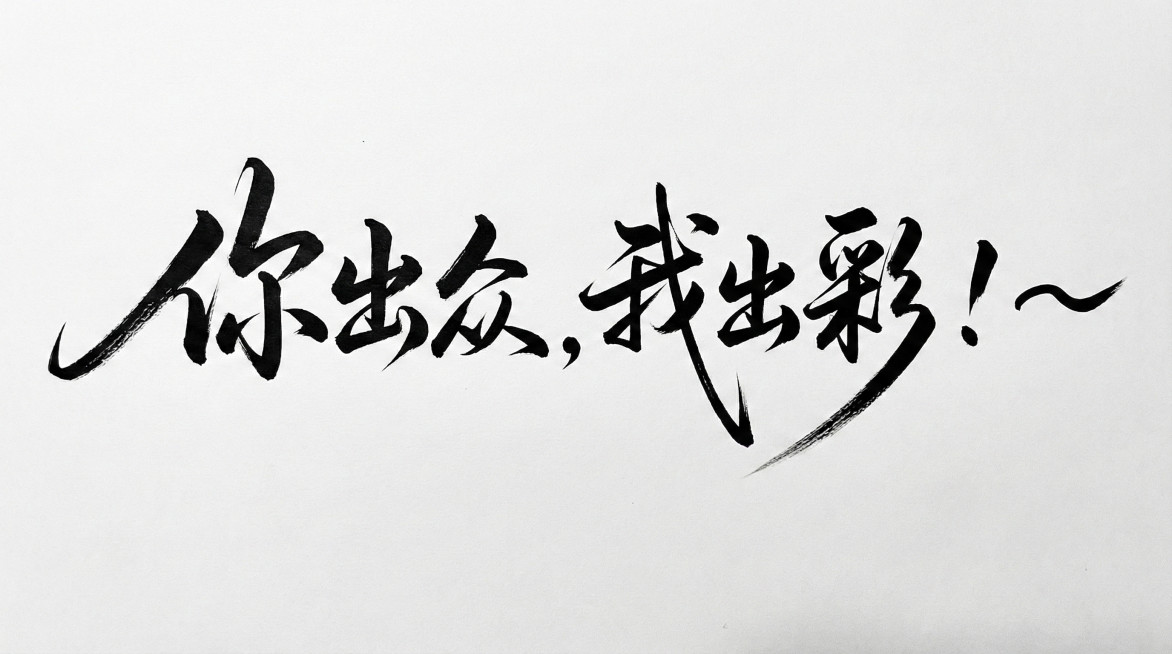 你出众，我出彩！～